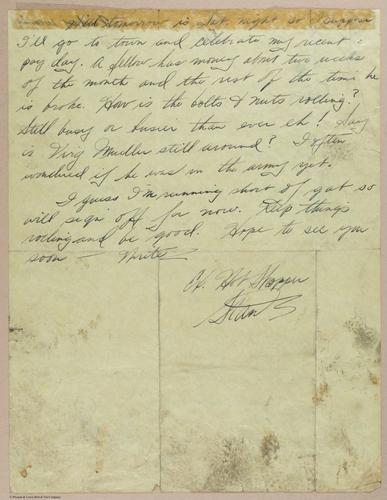 tomorrow is Sat. night so I suppose
I'll go to town and celebrate my recent
pay day. A fellow has money about two weeks
of the month and the rest of the time he
is broke. How is the bolts & nuts rolling?
Still busy or busier than ever eh! Say
is Virg Muller still around? I often
wondered if he was in the army yet.
I guess I'm running short of gab so
will sign off for now. Keep things
rolling and be good. Hope to see you
soon — Write
Hot Stopper